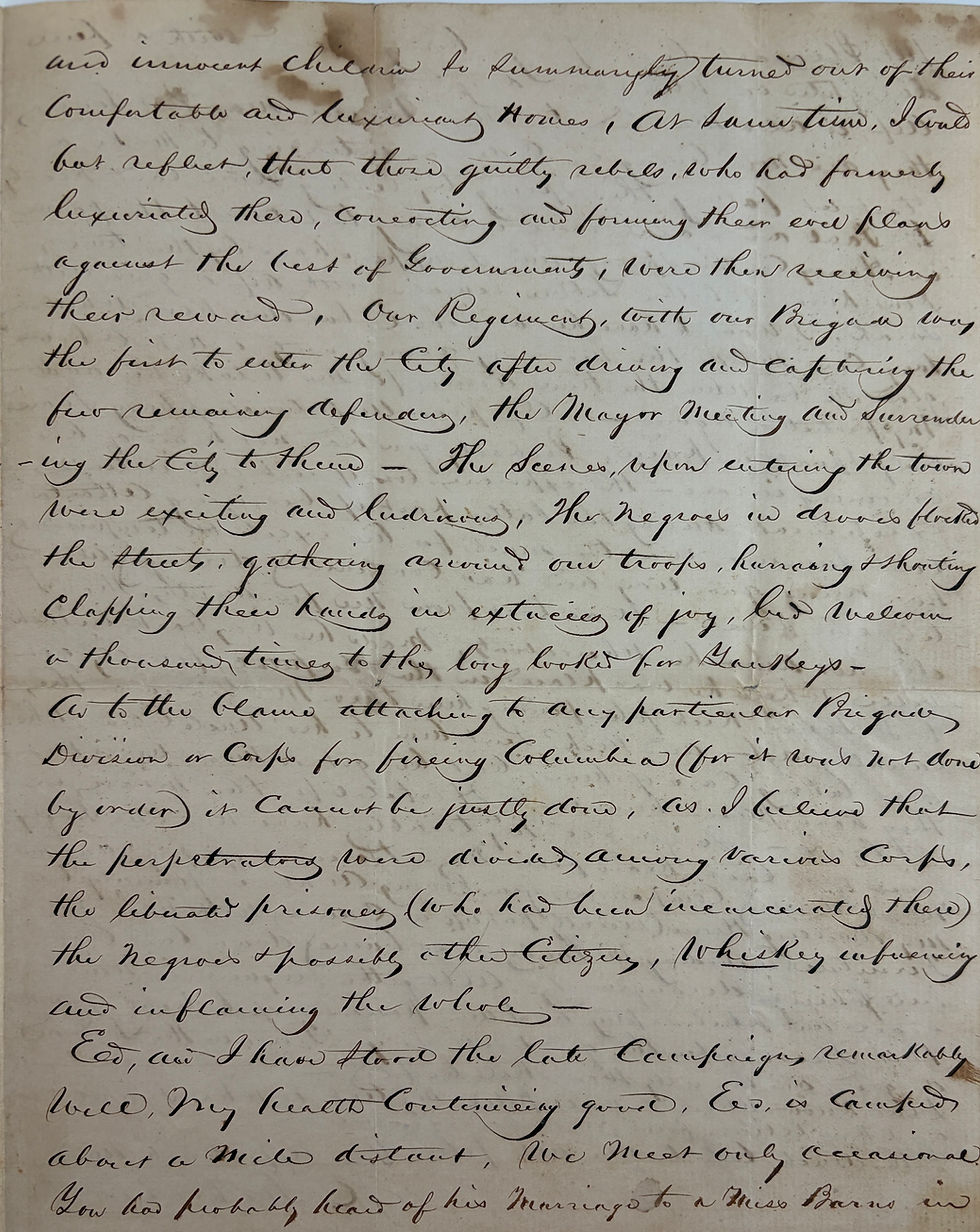 and innocent children so summarigly turned out of their
Comfortable and luxuriant Homes, At same time, I could
but reflect, that those guilty rebels, who had formerly
luxuriated there, concocting and forming their evil plans
against the best of Governments, were then receiving
their reward, Our Regiment, with our Brigade was
the first to enter the City after driving and capturing the
few remaining defenders, the Mayor Meeting and Surrender
-ing the City to them — The Scenes, upon entering the town
were exciting and ludricous, The Negroes in droves flocked
the streets, gathering around our troops, hurraing & shouting
Clapping their hands in extacies of joy, bid welcom
a thousand times to the long looked for Yankeys —
As to the blame attaching to any particular Brigade,
Division or Corps for fireing Columbia (for it was not done
by order) it Cannot be justly done, as I believe that
the perpetrators were divided among various Corps,
the liberated prisoners (who had been incarcerated there)
the Negroes & possibly other Citizens, Whiskey influencing
and inflaming the whole —
Ed, and I have stood the late Campaign, remarkably
well, My health Continueing good, Ed. is Camped
about a Mile distant, We Meet only occasional
You had probably heard of his Marriage to a Miss Barns in